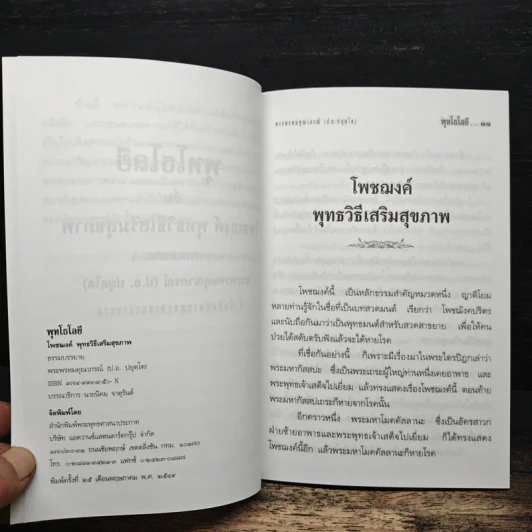 พุทโธโลยี
โพชฌงค์ พุทธวิธีเสริมสุขภาพ
ธรรมบรรยาย
พระพรหมคุณาภรณ์ (ป.อ. ปยุตฺโต)
บรรณาธิการ นายนิคม
จัดพิมพ์โดย
สำนักพิมพ์พระพุทธศาสนาประกาศ
บริษัท แอดวานซ์แสตนดาร์ดกรุ๊ป จำกัด
ถนนชัยพฤกษ์ เขตตลิ่งชัน กทม. ๑๐๑๗๐
พิมพ์ครั้งที่ ๒๕ เดือนพฤษภาคม พ.ศ. ๒๕๔๙
พระพรหมคุณาภรณ์ (ป.อ.ปยุตฺโต)
พุทโธโลยี ... ๑๑
โพชฌงค์
พุทธวิธีเสริมสุขภาพ
โพชฌงค์นี้ เป็นหลักธรรมสำคัญหมวดหนึ่ง ญาติโยม
หลายท่านรู้จักในชื่อที่เป็นบทสวดมนต์ เรียกว่า โพชฌงคปริตร
และนับถือกันมาว่าเป็นพุทธมนต์สำหรับสวดสาธยาย เพื่อให้คน
ป่วยได้สดับตรับฟังแล้วจะได้หายโรค
ที่เชื่อกันอย่างนี้ ก็เพราะมีเรื่องมาในพระไตรปิฎกเล่าว่า
พระมหากัสสปะ ซึ่งเป็นพระเถระผู้ใหญ่ท่านหนึ่งเคยอาพาธ และ
พระพุทธเจ้าเสด็จไปเยี่ยม แล้วทรงแสดงเรื่องโพชฌงค์นี้ ตอนท้าย
พระมหากัสสปเถระก็หายจากโรคนั้น
อีกคราวหนึ่ง พระมหาโมคคัลลานะ ซึ่งเป็นอัครสาวก
ฝ่ายซ้ายอาพาธและพระพุทธเจ้าเสด็จไปเยี่ยม ก็ได้ทรงแสดง
โพชฌงค์นี้อีก แล้วพระมหาโมคคัลลานะก็หายโรค